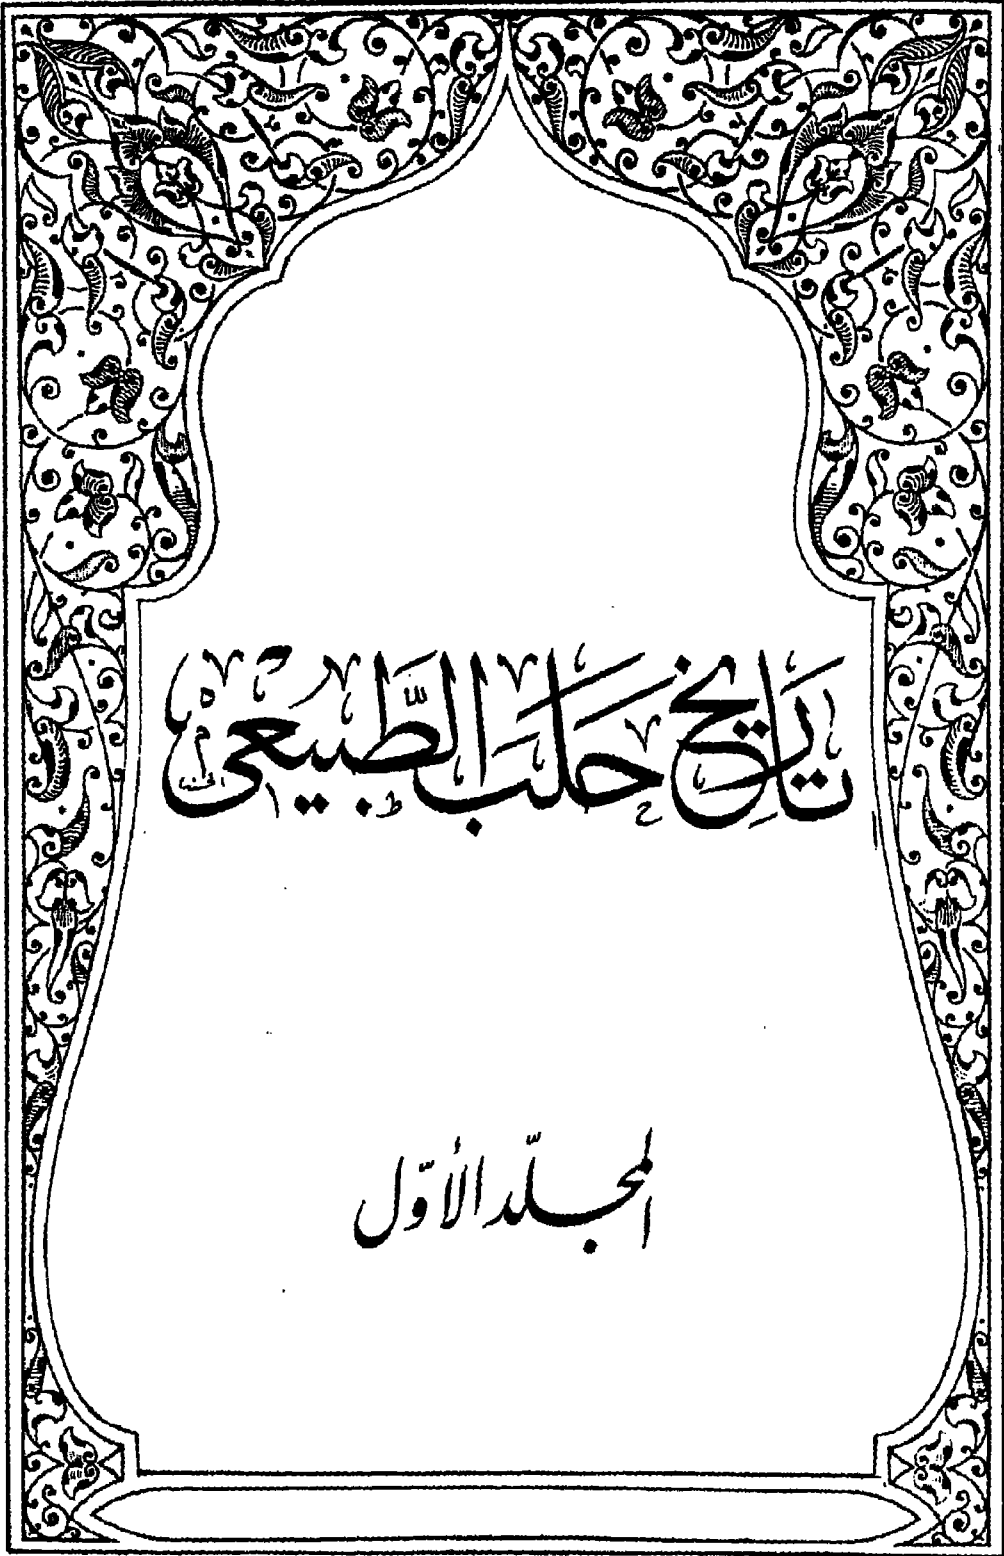 تاريخ حلب الطبيعي
المجلد الأول